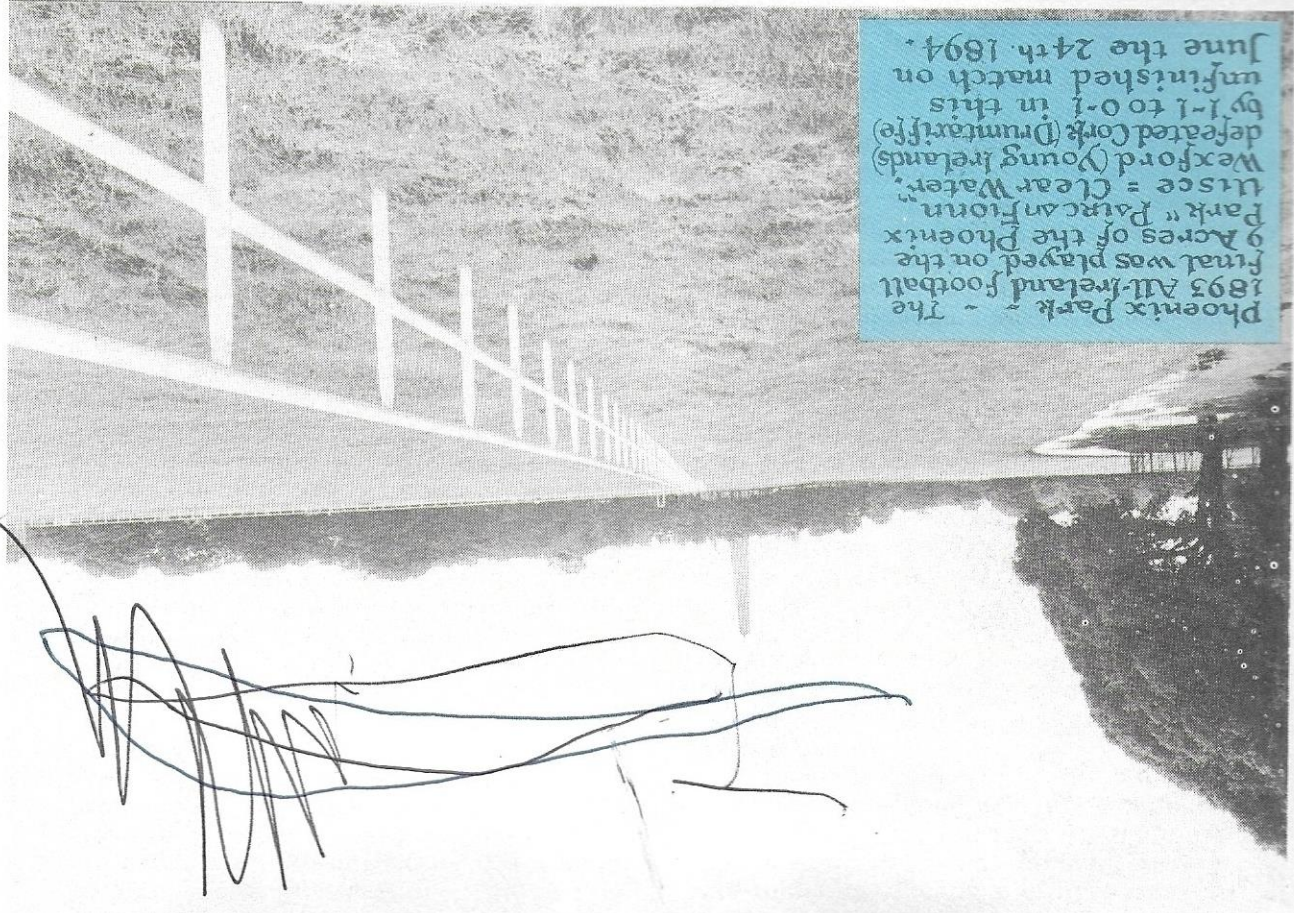 Phoenix Park - The
1893 All-Ireland Football
Final was played on the
9 Acres of the Phoenix
Park "Páirc an Fionn
Uisce = Clear Water".
Wexford (Young Irelands)
defeated Cork (Drumtariffe)
by 1-1 to 0-1 in this
unfinished match on
June the 24th. 1894.